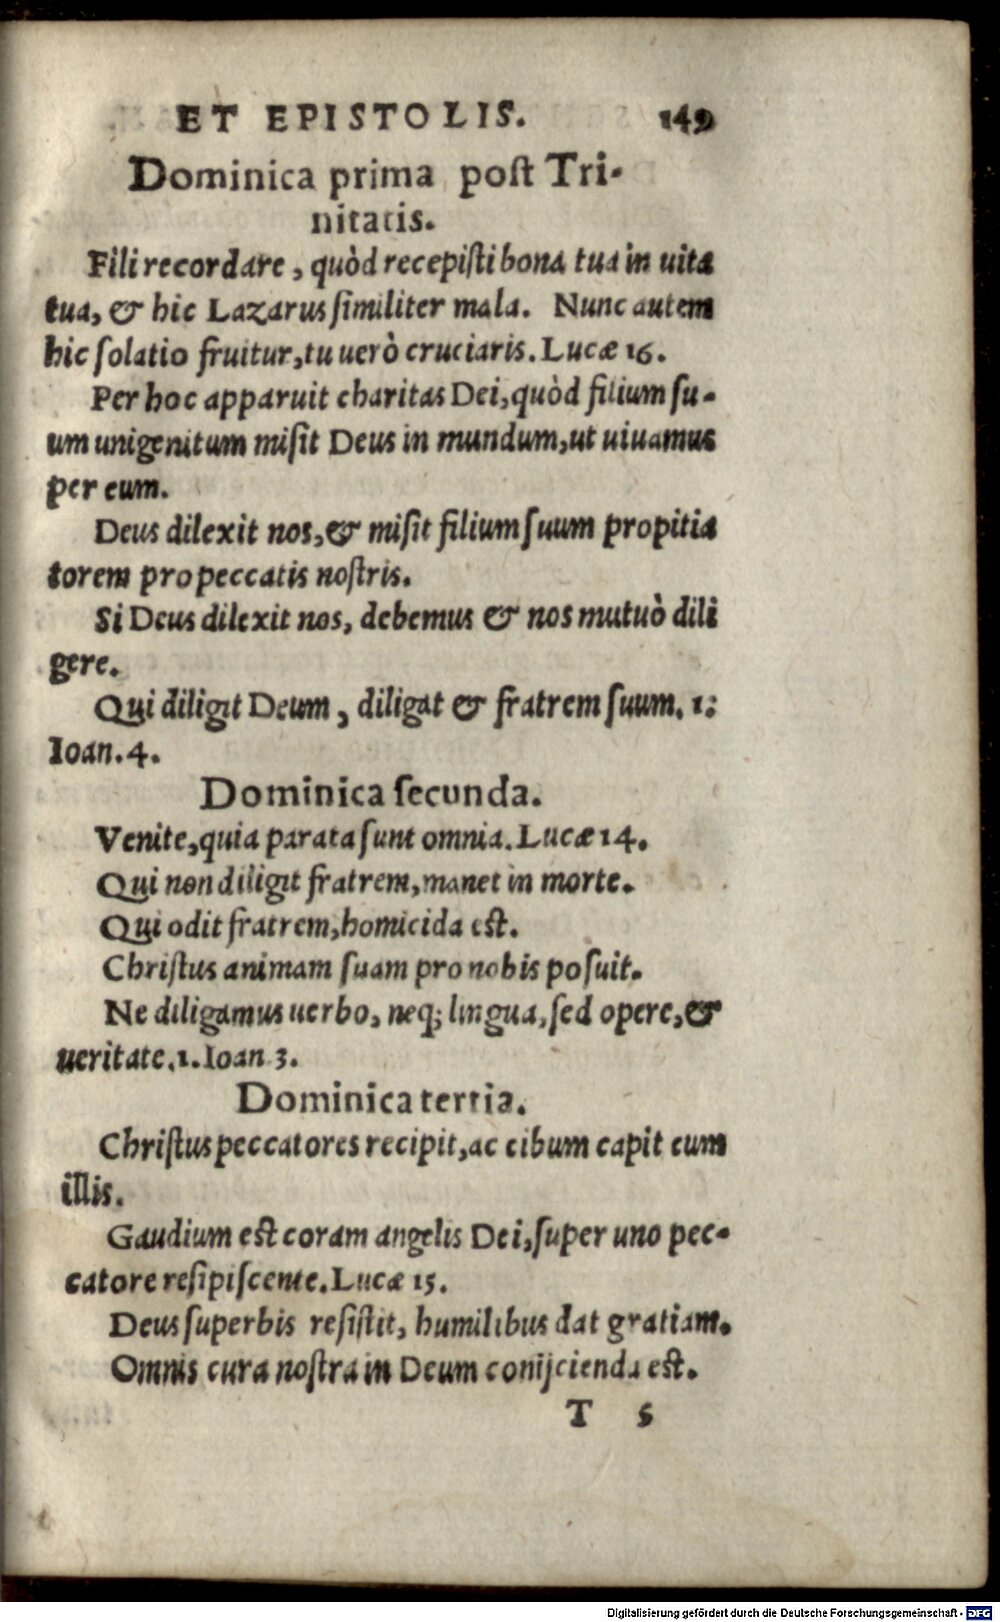 ET EPISTOLIS. 149
Dominica prima post Tri-
nitatis.
Fili recordare, quòd recepisti bona tua in uita
tua, & hic Lazarus similiter mala. Nunc autem
hic solatio fruitur, tu uerò cruciaris. Lucæ 16.
Per hoc apparuit charitas Dei, quòd filium su-
um unigenitum misit Deus in mundum, ut uiuamus
per eum.
Deus dilexit nos, & misit filium suum propitia
torem pro peccatis nostris.
Si Deus dilexit nos, debemus & nos mutuò dili
gere.
Qui diligit Deum, diligat & fratrem suum. 1:
Ioan. 4.
Dominica secunda.
Venite, quia parata sunt omnia. Lucæ 14.
Qui non diligit fratrem, manet in morte.
Qui odit fratrem, homicida est.
Christus animam suam pro nobis posuit.
Ne diligamus uerbo, neq; lingua, sed opere, &
ueritate. 1. Ioan 3.
Dominica tertia.
Christus peccatores recipit, ac cibum capit cum
illis.
Gaudium est coram angelis Dei, super uno pec-
catore resipiscente. Lucæ 15.
Deus superbis resistit, humilibus dat gratiam.
Omnis cura nostra in Deum conijcienda est.
T 5
Digitalisierung gefördert durch die Deutsche Forschungsgemeinschaft - DFG